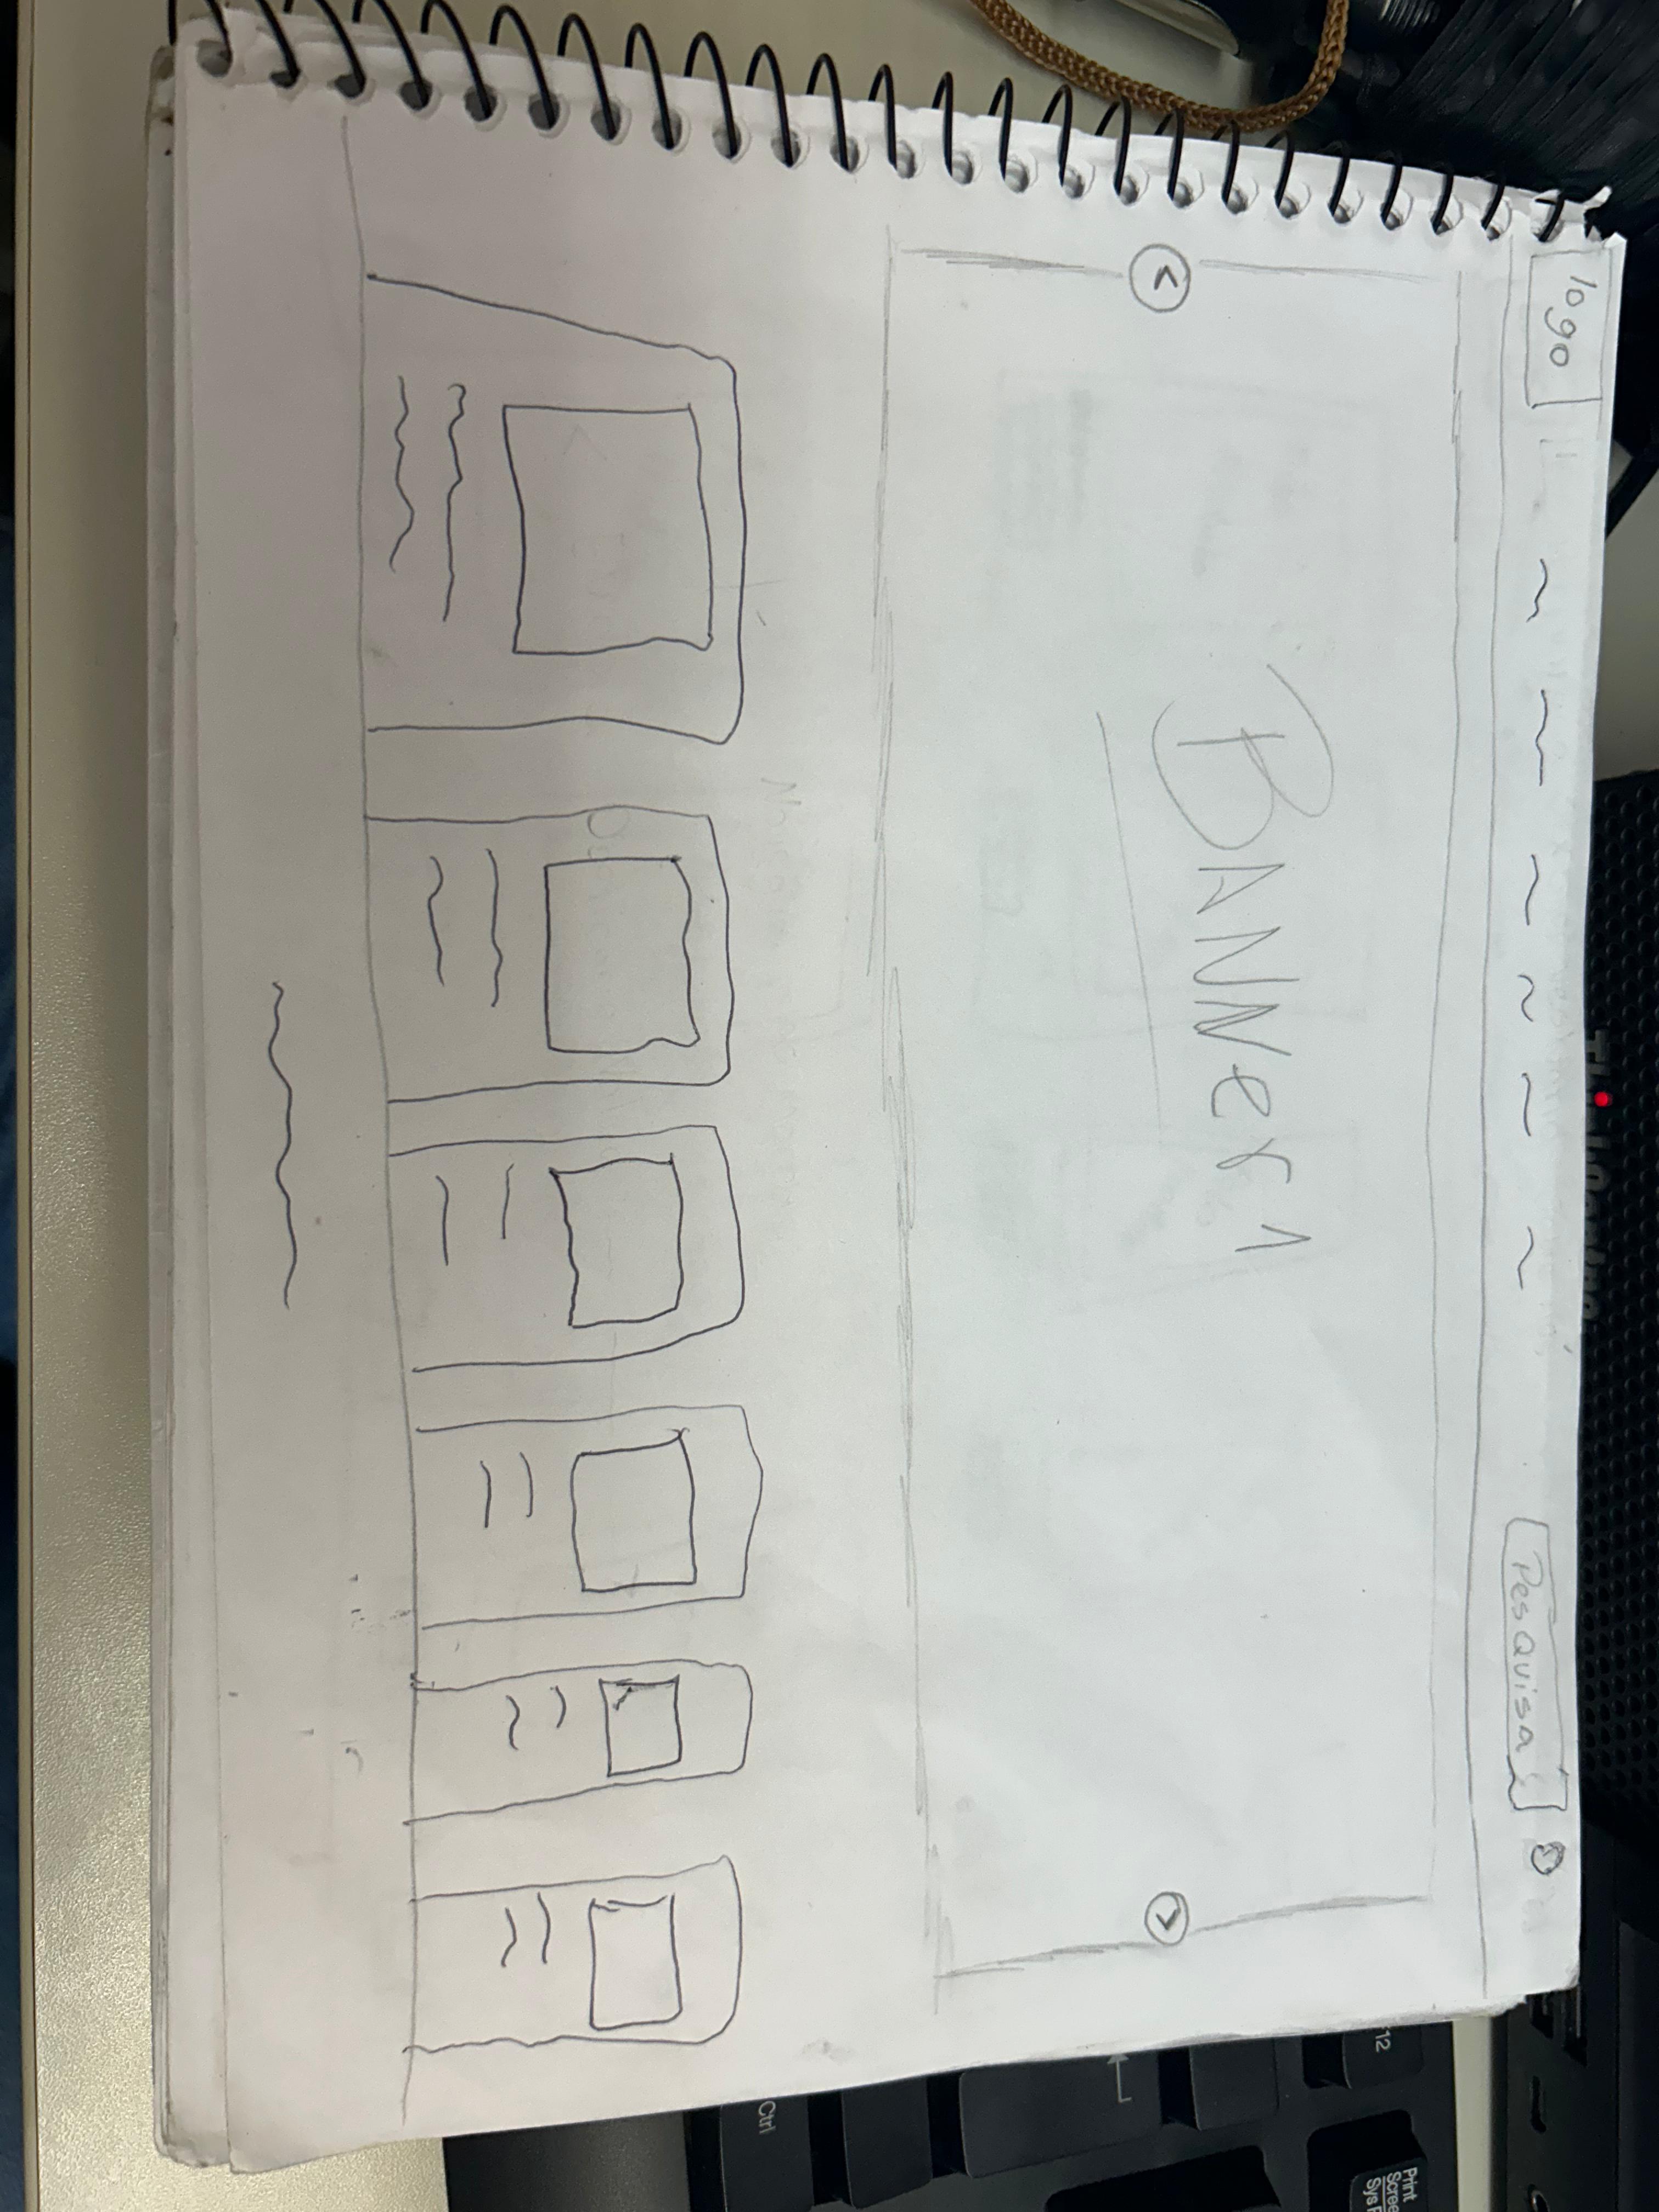 logo
Pesquisa
BANNer 1
F12
Ctrl
Print
Screen
Sys R